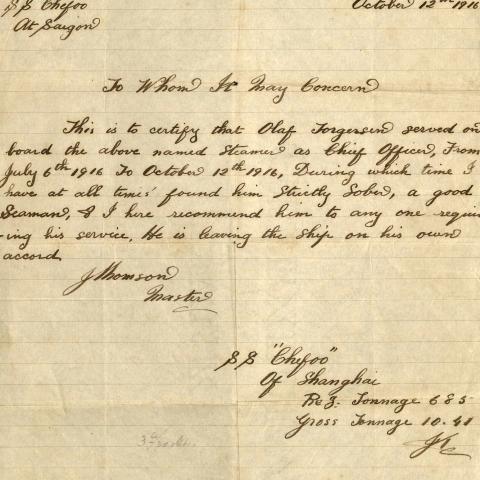 SS Chefoo October 12th 1916
At Saigon
To Whom It May Concern
This is to certify that Olaf Torgersen served on
board the above named Steamer as Chief Officer, From
July 6th 1916 To October 12th 1916, During which time I
have at all times found him Strictly Sober, a good
Seaman, & I here recommend him to any one requir
-ing his service. He is leaving the ship on his own
accord
J Thomson
Master
SS "Chefoo"
Of Shanghai
Reg. Tonnage 685
Gross Tonnage 10.41
JT